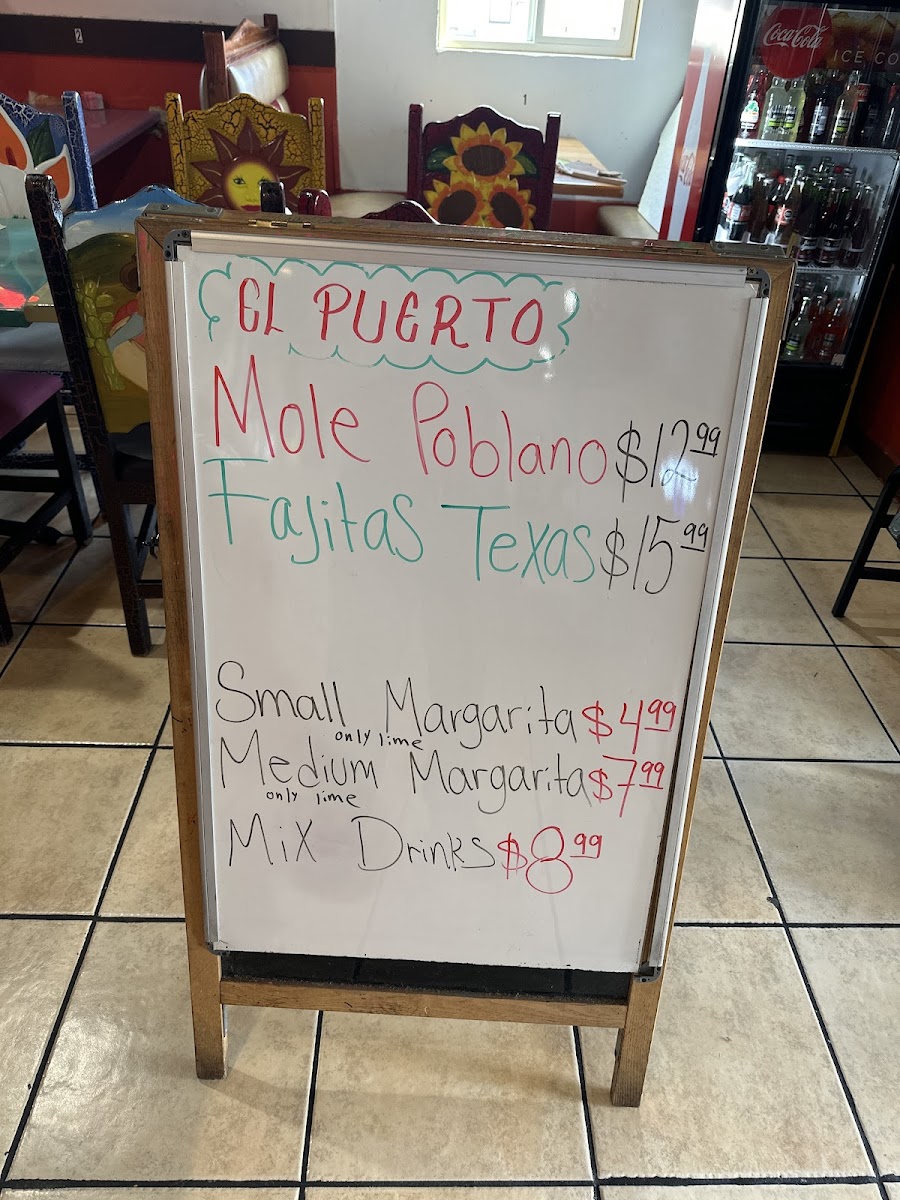 EL PUERTO
Mole Poblano $12.99
Fajitas Texas $15.99
Small Margarita $4.99
only lime
Medium Margarita $7.99
only lime
Mix Drinks $8.99
Coca-Cola
ICE CO